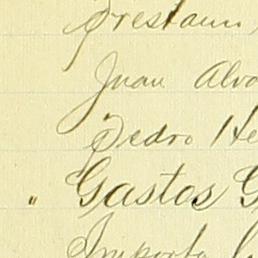 Prestam
Juan Alva
Pedro He
" Gastos G
Importa